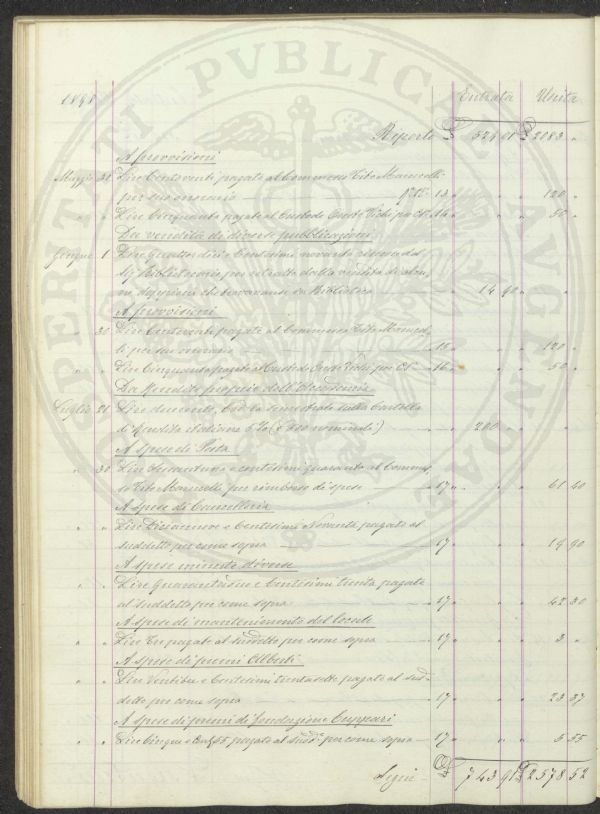 PROSPERITATI PUBLICAE AUGENDAE
Entrata Uscita
Riporto £ 528 01 £ 2083 "
A provvisioni
Maggio 31 Lire Centoventi pagate al Commesso Tito Marucelli
per suo onorario 13 " 120 "
" " Lire Cinquanta pagate al Custode 14 " 50 "
Da vendita di diverse pubblicazioni
Giugno 1 Lire Quattordici e Centesimi novanta
Sig. Bibliotecario per ritratto dalla vendita di
che trovavansi in Biblioteca 14 90 " "
A provvisioni
" 30 Lire Centoventi pagate al Commesso Tito Marucel-
li per suo onorario 15 " 120 "
" " Lire Cinquanta pagate al Custode 16 " 50 "
Da Rendite proprie dell'Accademia
Luglio 21 Lire duecento, Cedola semestrale sulla Cartella
di Rendita italiana 5% (£ nominali) 200 " " "
A spese di Posta
" 30 Lire Sessantuna e centesimi quaranta al Commes-
so Tito Marucelli per rimborso di spese 17 " 61 40
A spese di Cancelleria
" " Lire Diciannove e Centesimi Novanta pagate al
suddetto per come sopra 17 " 19 90
A spese minute diverse
" " Lire Quarantadue e Centesimi trenta pagate
al suddetto per come sopra 17 " 42 30
A spese di mantenimento del locale
" " Lire Tre pagate al suddetto per come sopra 17 " 3 "
A spese di premi Alberti
" " Lire Ventitre e Centesimi trentasette pagate al sud-
detto per come sopra 17 " 23 37
A spese di premi di fondazione Cuppari
" " Lire Cinque e Cent. 55 pagate al Sudd. per come sopra 17 " 5 55
Segue £ 743 91 £ 2578 52